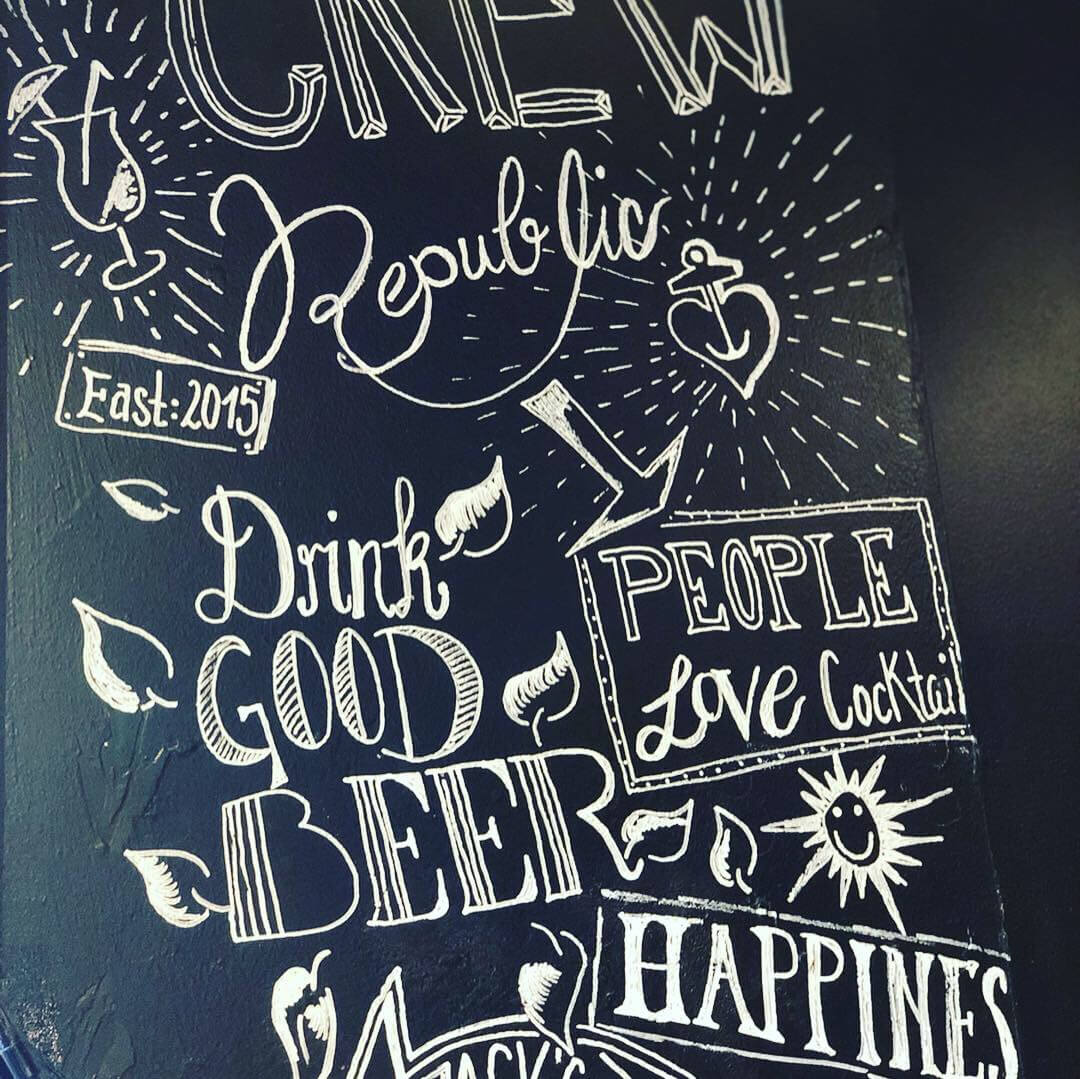 CREW
Republic
East:2015
Drink
GOOD
BEER
PEOPLE
Love Cocktail
HAPPINES
JACK'S